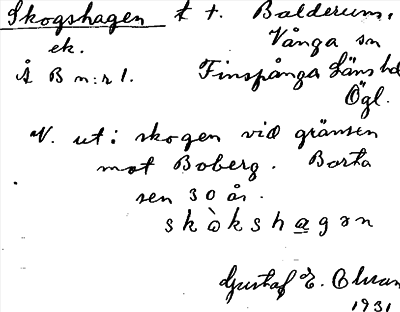 Skogshagen t t. Balderum,
ek. Vånga sn
Å B n:r 1. Finspånga Läns hd
Ögl.
N. ut i skogen vid gränsen
mot Boberg. Borta
sen 30 år.
skòkshagən
Gustaf E. Olsson
1931